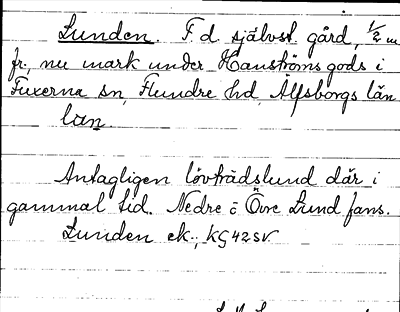 Lunden. F. d. självst. gård, 1/2 m
fr., nu mark under Hanströms gods i
Fuxerna sn, Flundre hd, Älfsborgs län
lun
Antagligen lövträdslund där i
gammal tid. Nedre o Övre Lund fans.
Lunden ek., KG 42 SV.